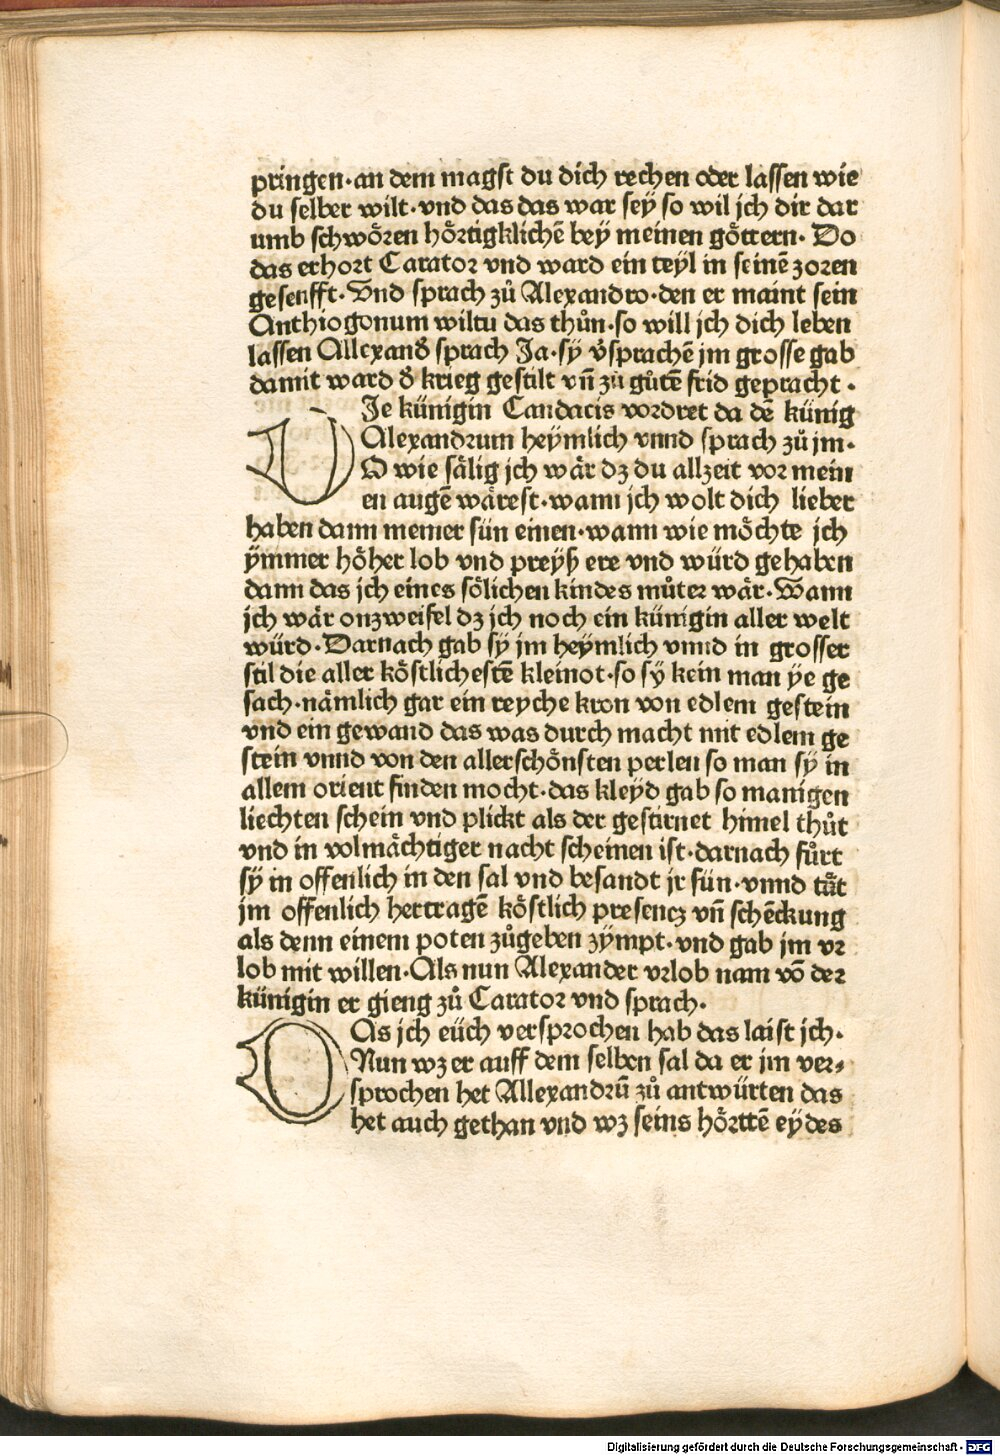 pringen·an dem magst du dich rechen oder lassen wie
du selber wilt·vnd das das war sey̋ so wil jch dir dar
umb schwoͤren hoͤrtigklichē bey̋ meinen goͤttern· Do
das erhort Carator vnd ward ein tey̋l in seinē zoren
gesenfft·Vnd sprach zů Alexandro·den er maint sein
Anthiogonum wiltu das thůn·so will jch dich leben
lassen Allexand̓ sprach Ja·sy̋ v̓sprachē jm grosse gab
damit ward d̓ krieg gestilt vn̄ zů gůtē frid gepracht·
DJe künigin Candacis vordret da dē künig
Alexandrum hey̋mlich vnnd sprach zů jm·
O wie saͤlig jch waͤr dz du allzeit vor mein
en augē waͤrest·wann jch wolt dich lieber
haben dann meiner sün einen·wann wie moͤchte jch
y̋mmer hoͤher lob vnd prey̋ß ere vnd würd gehaben
dann das jch eines soͤlichen kindes můter waͤr·Wann
jch waͤr onzweifel dz jch noch ein künigin aller welt
würd·Darnach gab sy̋ jm hey̋mlich vnnd in grosser
stil die aller koͤstlichestē kleinot·so sy̋ kein man y̋e ge
sach·naͤmlich gar ein reyche kron von edlem gestein
vnd ein gewand das was durch macht mit edlem ge
stein vnnd von den allerschoͤnsten perlen so man sy̋ in
allem orient finden mocht·das kley̋d gab so manigen
liechten schein vnd plickt als der gestirnet himel thůt
vnd in volmaͤchtiger nacht scheinen ist·darnach fůrt
sy̋ in offenlich in den sal vnd besandt jr sün·vnnd taͤt
jm offenlich hertragē koͤstlich presencz vn̄ schēckung
als denn einem poten zůgeben zy̋mpt·vnd gab jm vr
lob mit willen·Als nun Alexander vrlob nam vō der
künigin er gieng zů Carator vnd sprach·
DAs jch eüch versprochen hab das laist jch·
Nun wz er auff dem selben sal da er jm ver⸗
sprochen het Allexandrū zů antwürten das
het auch gethan vnd wz seins hoͤrttē ey̋des
Digitalisierung gefördert durch die Deutsche Forschungsgemeinschaft - DFG